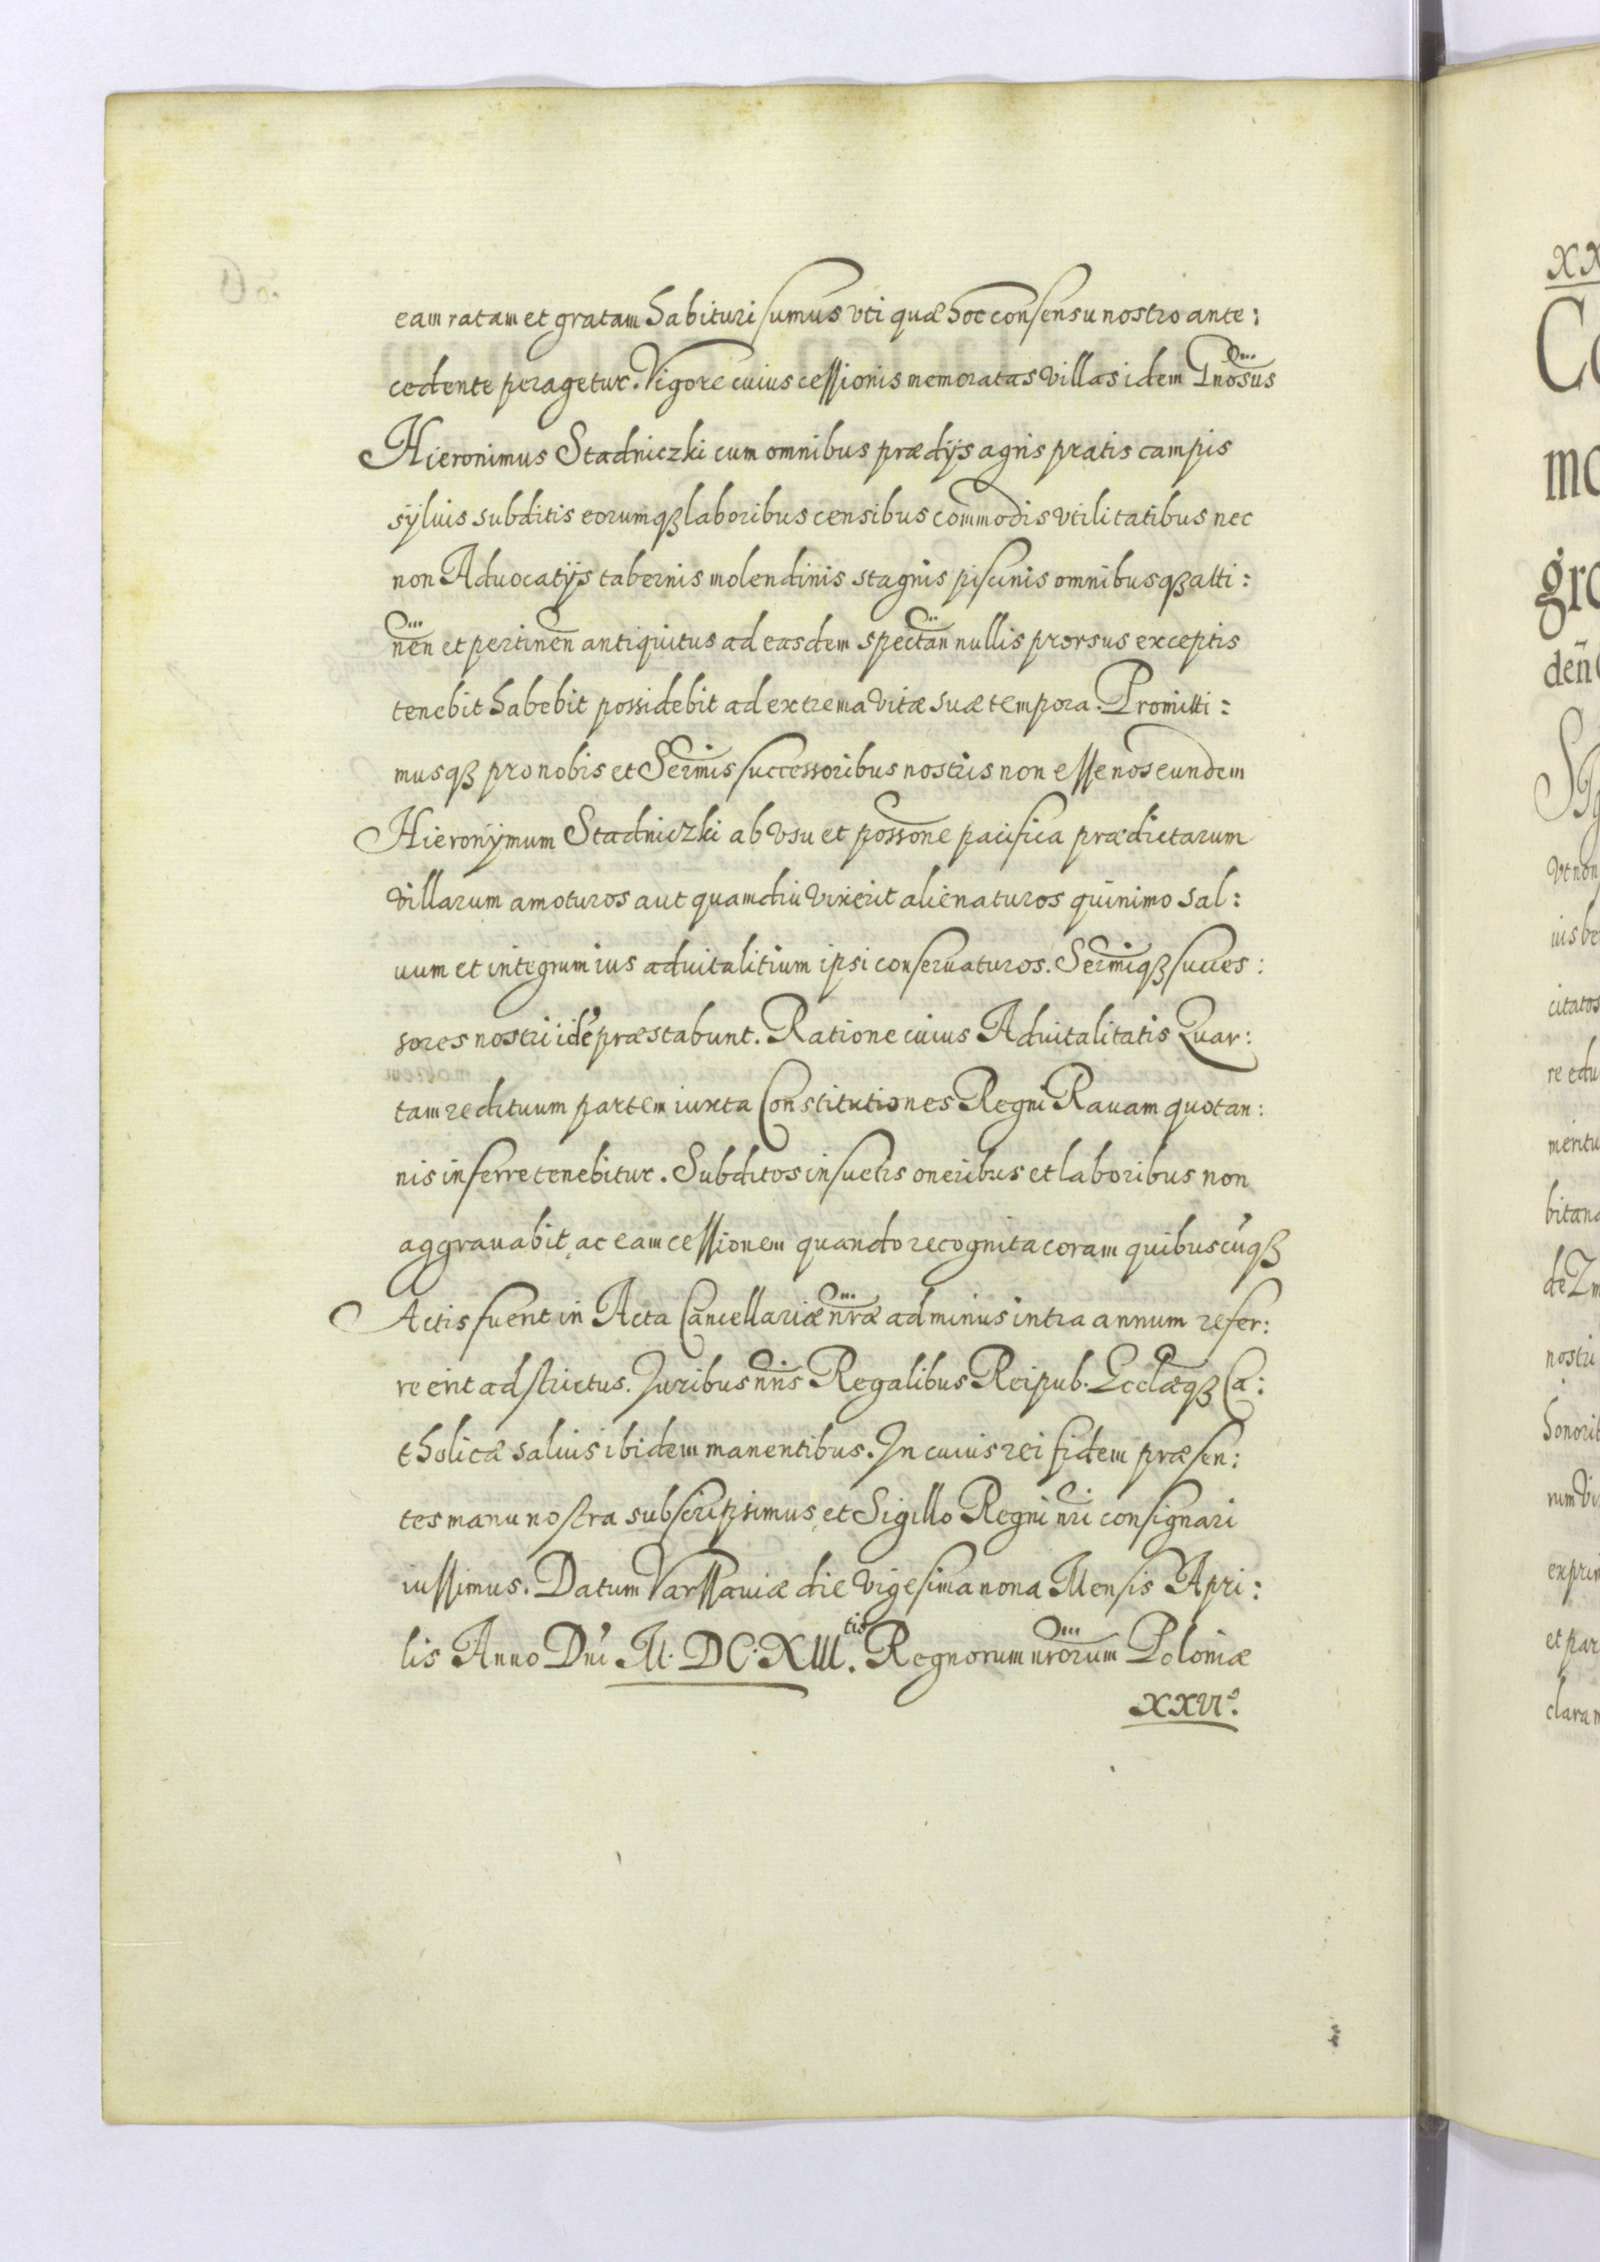 eam ratam et gratam habituri sumus vti quæ hoc consensu nostro ante:
cedente peragetur. Vigore cuius cessionis memoratas villas idem Gnosus
Hieronimus Stadniczki cum omnibus prædijs agris pratis campis
sÿluis subditis eorumqꝫ laboribus censibus commodis vtilitatibus nec
non Aduocatijs tabernis molendinis stagnis piscinis omnibusqꝫ atti:
nen̄ et pertinen̄ antiquitus ad easdem spectan̄ nullis prorsus exceptis
tenebit habebit possidebit ad extrema vitæ suæ tempora. Promitti:
musqꝫ pro nobis et Sermis successoribus nostris non esse nos eundem
Hieronÿmum Stadniczki ab vsu et possone pacifica prædictarum
villarum amoturos aut quamdiu vixerit alienaturos quinimo sal:
uum et integrum ius aduitalitium ipsi conseruaturos. Sermiqꝫ succes:
sores nostri idē præstabunt. Ratione cuius Aduitalitatis Quar:
tam redituum partem iuxta Constitutiones Regni Rauam quotan:
nis inferre tenebitur. Subditos insuetis oneribus et laboribus non
aggrauabit, ac eam cessionem quando recognita coram quibuscūqꝫ
Actis fuerit in Acta Cancellariæ nr̄æ ad minus intra annum refer:
re erit adstrictus. Juribus nr̄is Regalibus Reipub. Ecclæqꝫ Ca:
tholicæ saluis ibidem manentibus. In cuius rei fidem præsen:
tes manu nostra subscripsimus, et Sigillo Regni nr̄i consignari
iussimus. Datum Varssauiæ die vigesima nona Mensis Apri:
lis Anno Dni M. DC. XIII.tis Regnorum nrorum Poloniæ
XXVI.o